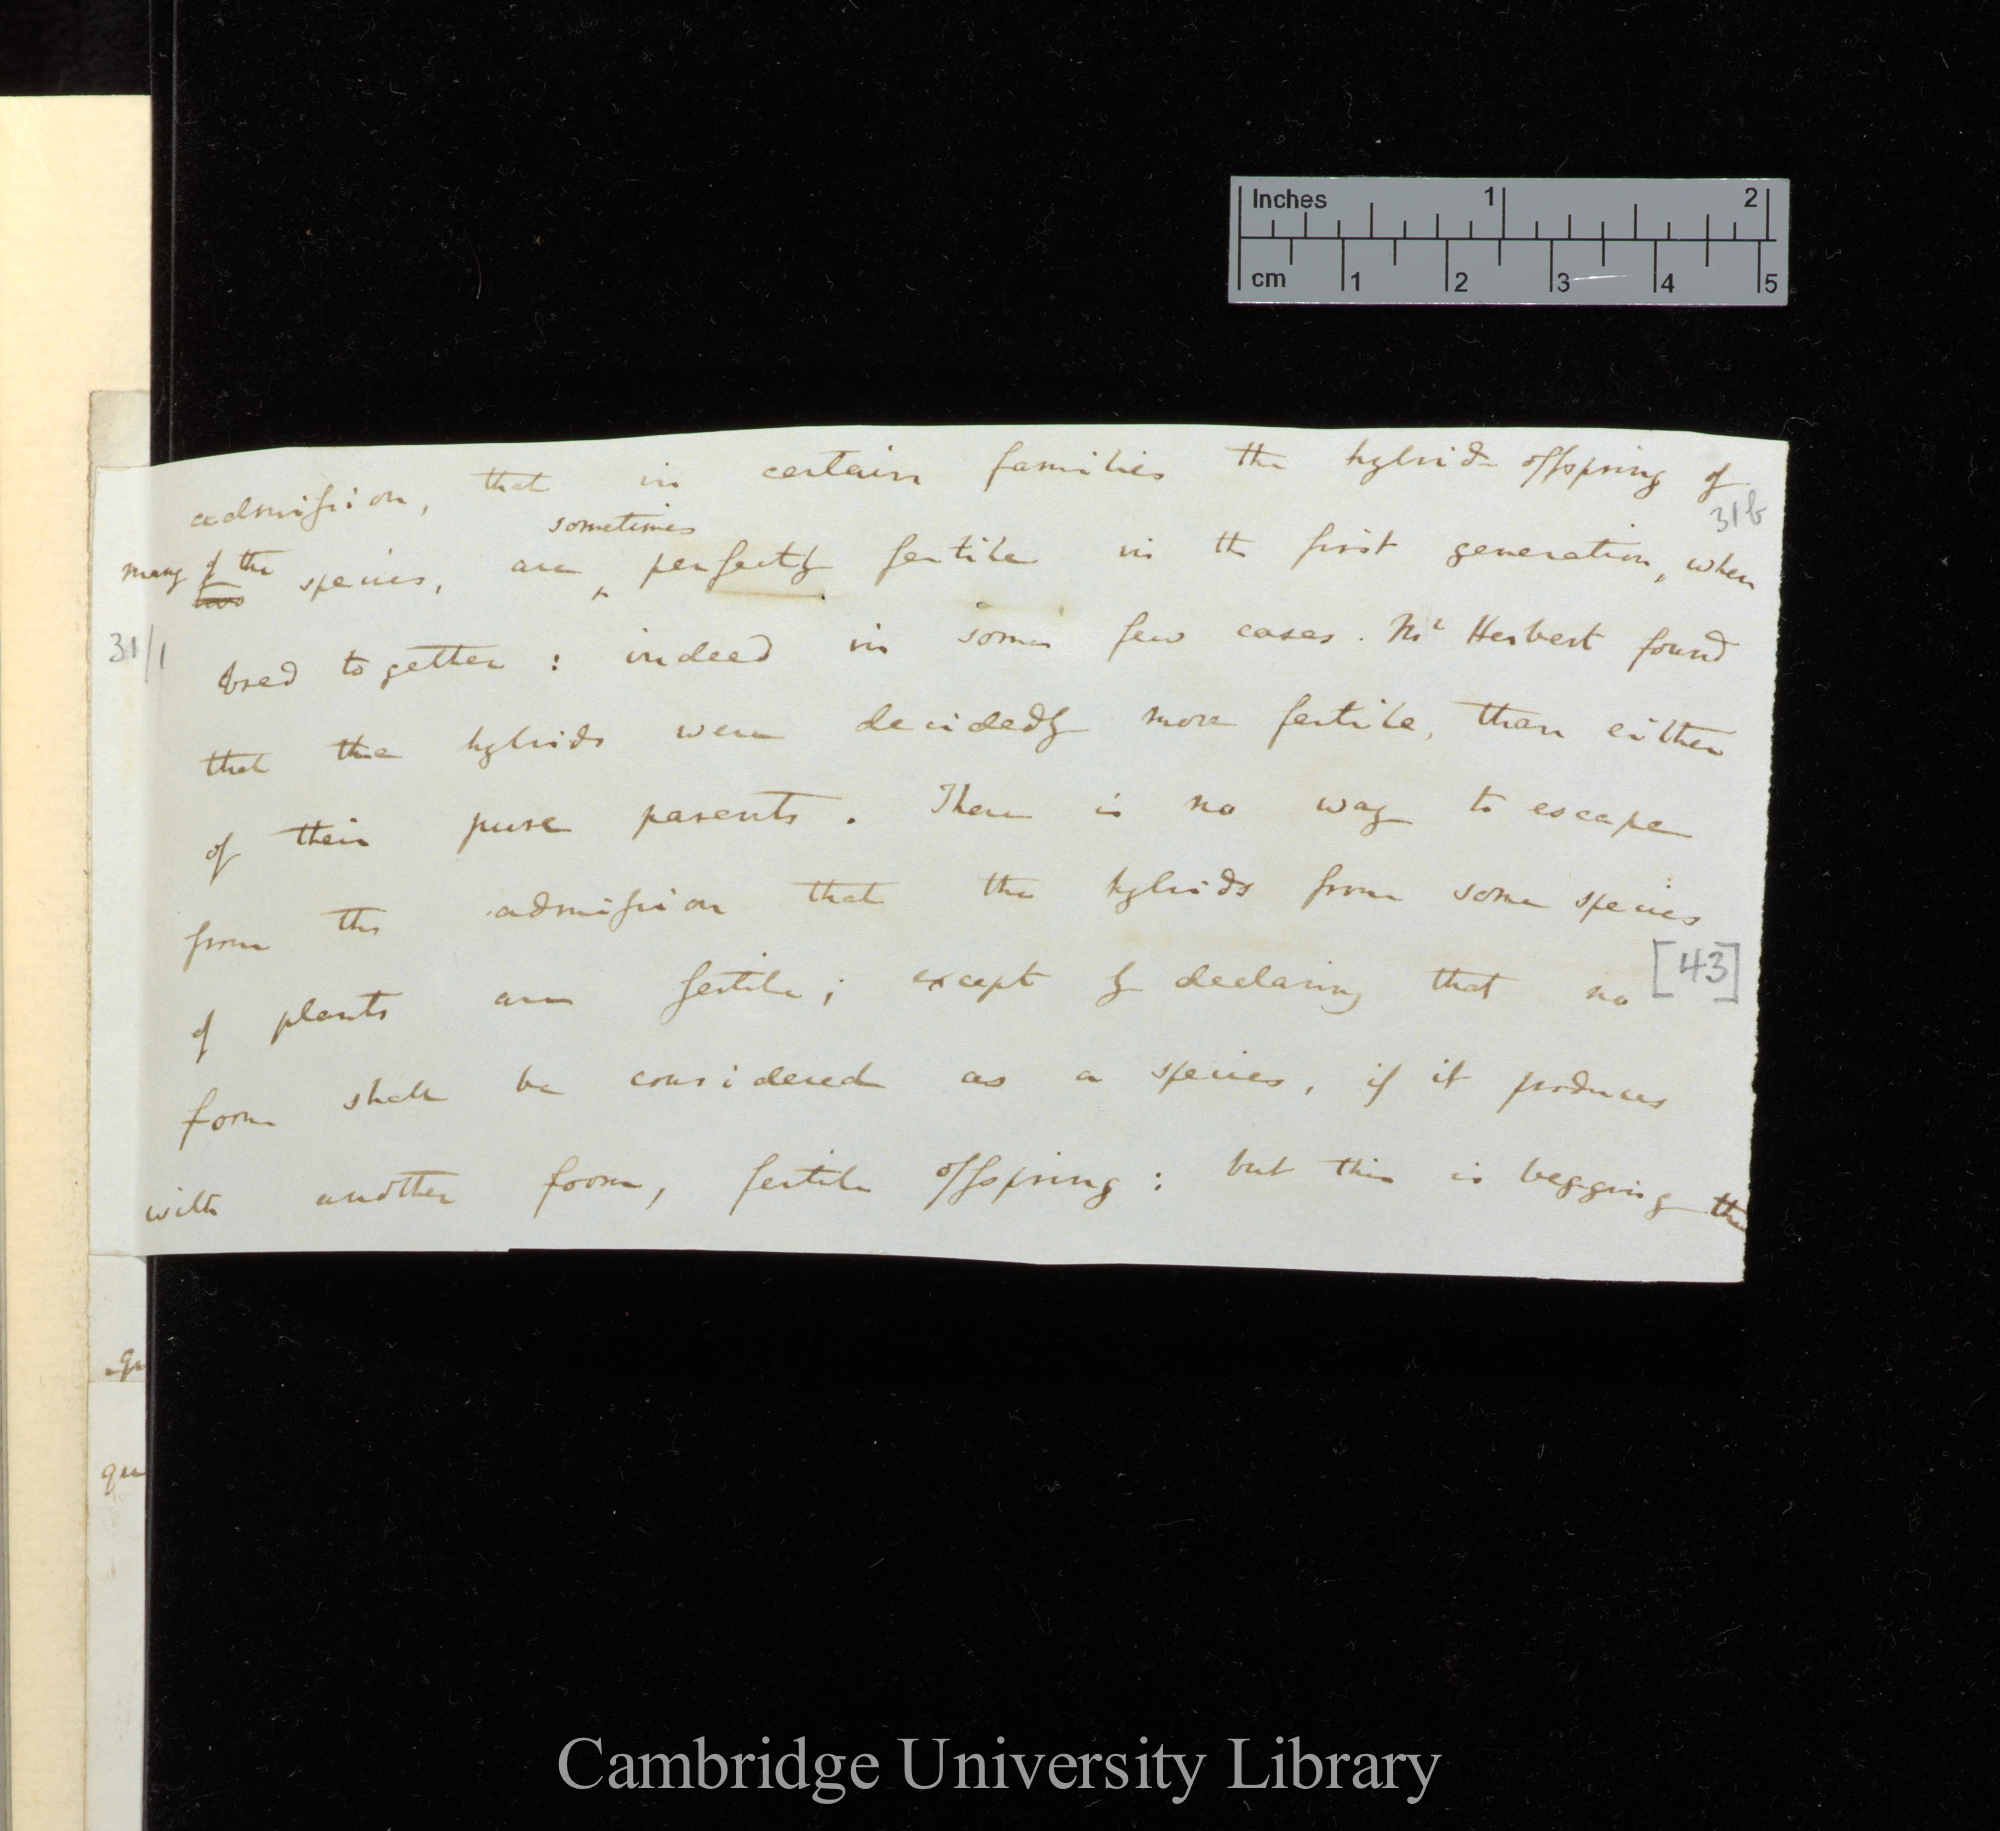 Inches 1 2
cm 1 2 3 4 5
admission, that in certain families the hybrid offspring of
31b
sometimes
many of the two species, are ^ perfectly fertile in the first generation, when
31/1
bred together : indeed in some few cases. Mr Herbert found
that the hybrids were decidedly more fertile, than either
of their pure parents. There is no way to escape
from the admission that the hybrids from some species
[43]
of plants are fertile; except by declaring that no
form shall be considered as a species, if it produces
with another form, fertile offspring : but this is begging the
qu
qu
Cambridge University Library